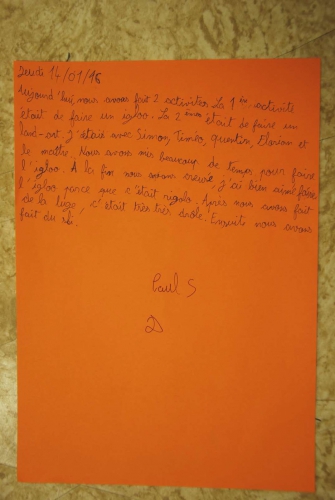 Jeudi 14/01/16
Aujourd'hui, nous avons fait 2 activités. La 1ère activité
était de faire un igloo. La 2ème était de faire un
land-art. J'étais avec Simon, Timéo, Quentin, Florian et
le maître. Nous avons mis beaucoup de temps pour faire
l'igloo. À la fin nous avons creusé, j'ai bien aimé faire
l'igloo parce que c'était rigolo. Après nous avons fait
de la luge, c'était très très drôle. Ensuit nous avons
fait du ski.
Paul S